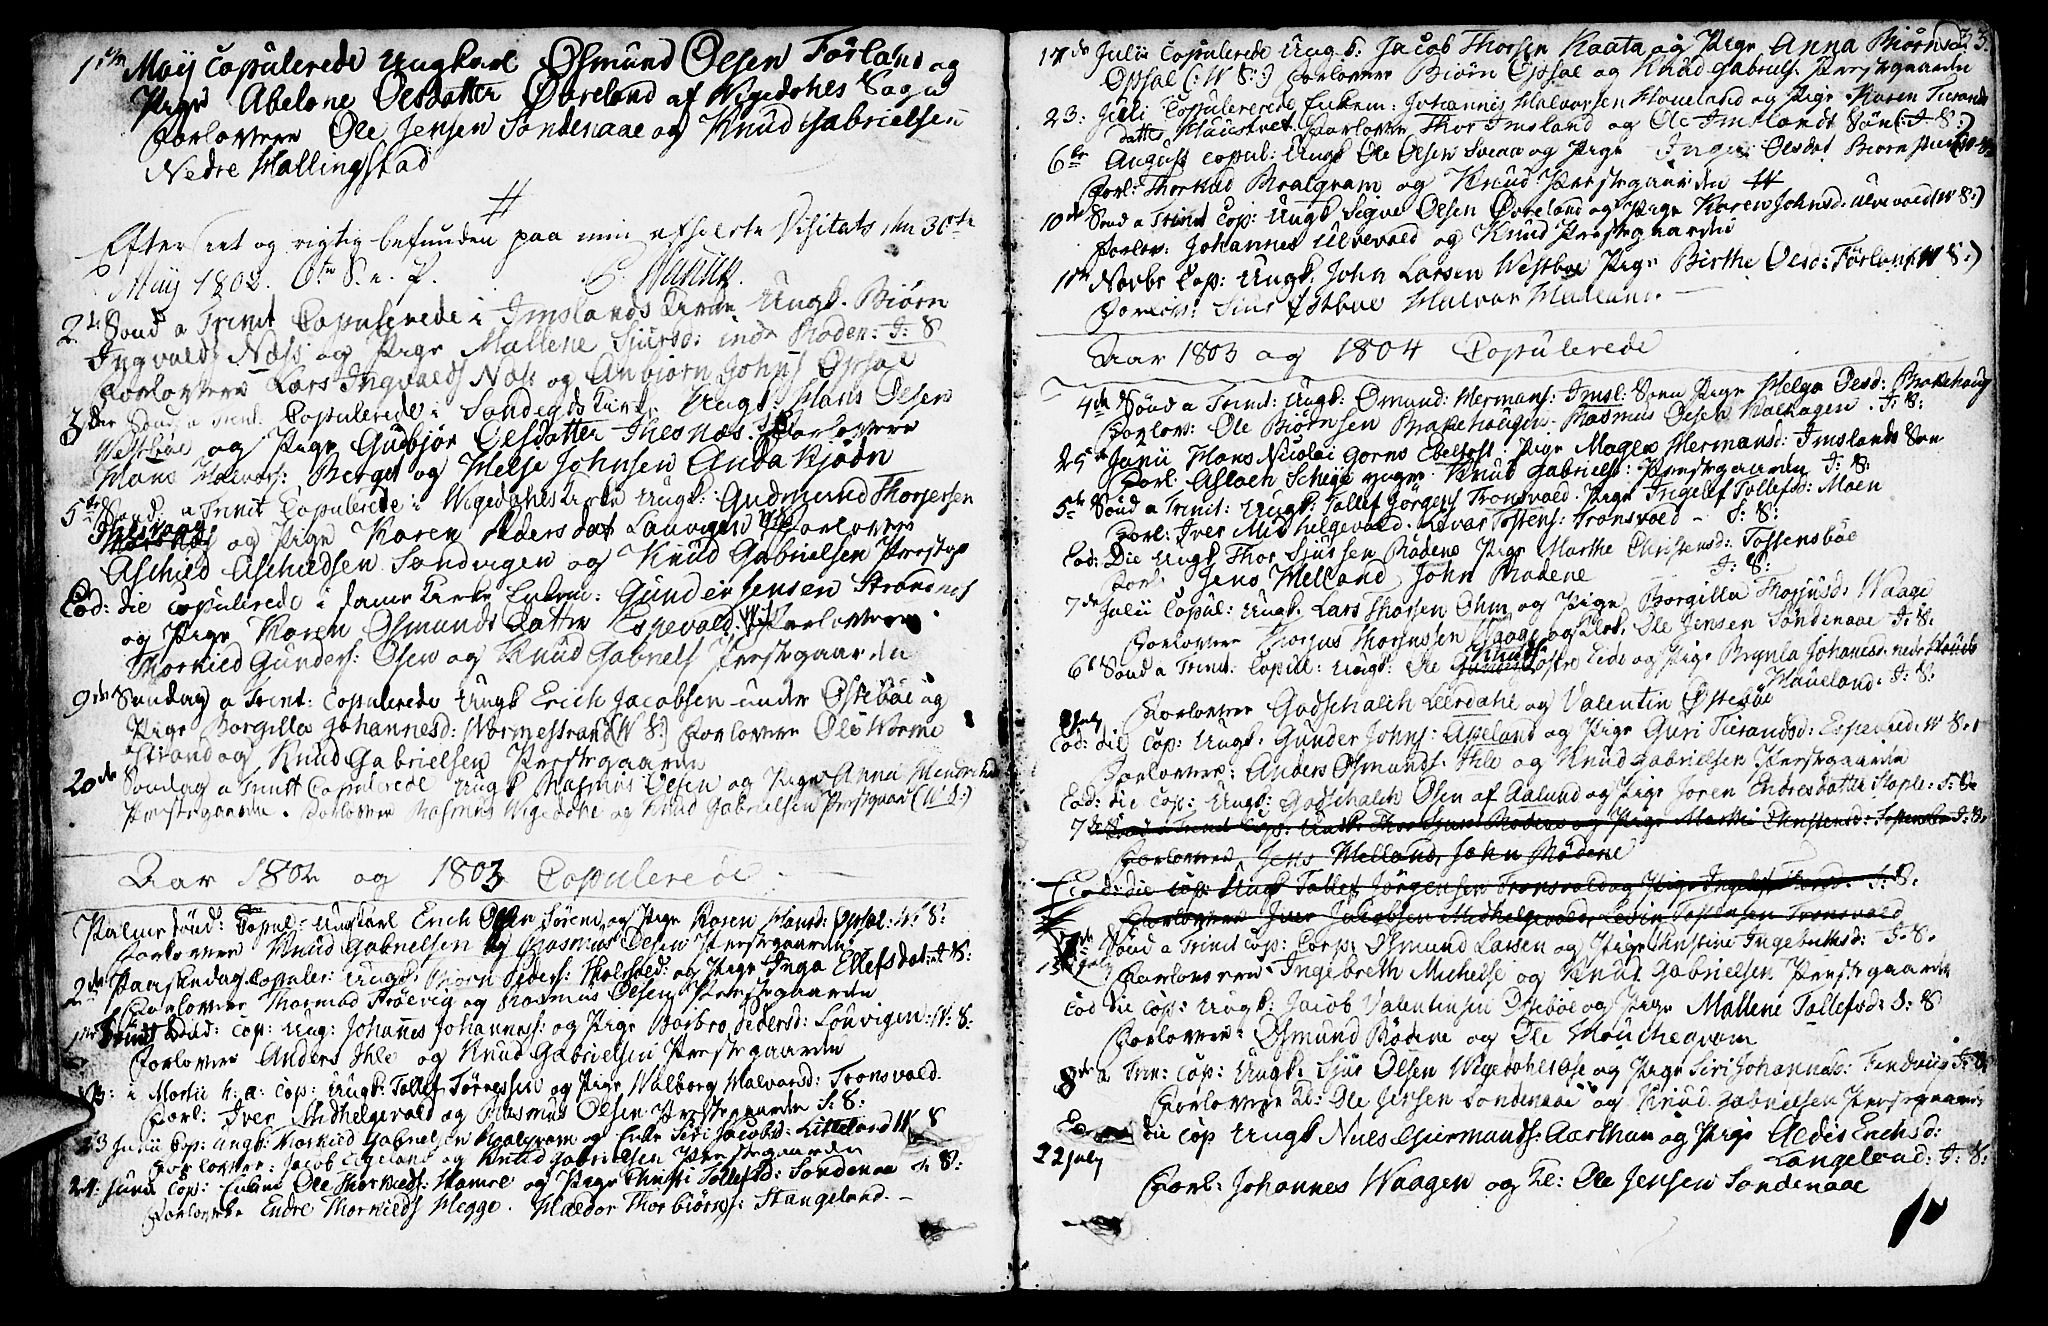 1ste Maij Copulerede Ungkarl Osmund Olsen Førland og
Pige Abelone Olsdatter Øvreland af Wigedahls Sogn
Forlovere Ole Jensen Søndenaae og Knud Gabrielsen
Nedre Hallingstad
Efterseet og rigtig befunden paa min afholdte Visitats den 30te
Maij 1802.
2d Sønd a Trinit Copulerede i Imslands Kirke Ungk. Biørn
Ingvalds Næss og Pige Mallene Siursd: indr Røden: I: S
Forlovere Lars Ingvalds Næss og Anbiørn Johns Opsal
3die Sønd a Trinit. Copulerede i Sandeids Kirke Ungk: Hans Olsen
Westbøe og Pige Gudbjør Olsdatter Thesnæs. Forlovere
Hans Halvors: Berget og Helje Johnsen Andakiødn
5te Sønd: a Trinit Copulerede i Wigedahls Kirke Ungk: Gudmund Thorsersen
og Pige Karen Pedersdat Lauvigen Forlovere
Aschild Aschildsen Sandvigen og Knud Gabrielsen Prestg
Eod: die Copulerede i samme Kirke Enkem: Gunder Jensen Strandnes
og Pige Karen Osmunds datter Espevold. Forlovere
Thorkild Gunders: Ølsen og Knud Gabriels Prestegaarden
9de Søndag a Trinit: Copulerede Ungk Erich Jacobsen under Østebøe og
Pige Borgilla Johannesd: Wormestrand (W S:) Forlovere Ole Worme
strand og Knud Gabrielsen Prestegaarden
20de Søndag a Trinit Copulerede Ungk Rasmus Olsen og Pige Anna Hendrichsd
Prestegaarden. Forlovere Rasmus Wigedahl og Knud Gabrielsen Prestgaar (W S:)
Aar 1802 og 1803 Copulerede
Palme sønd: Copul: Ungkarl Erich Sørene og Pige Karen Hansd: Opsal: W: S:
Forlovere Knud Gabrielsen og Rasmus Olsen Prestegaarden
2den Paaskedag Copuler: Ungk: Biørn Peders: og Pige Inga Ellefsdat: I: S:
Forlovere Thormod Frøevig og Rasmus Olsen Prestegaarden
Cop: Ung: Johannes Johannes: og Pige Boibro Pedersd: Louvigen: W: S:
Forlovere Anders Ihle og Knud Gabrielsen Prestegaarden
NB: i Martii h: a: Cop: Ungk: Tollef Tørressen og Pige Walborg Halvorsd: Tronsvold.
Forl: Iver Midhelgevold og Rasmus Olsen Prestegaarden I: S:
23 Junii Cop: Ungk: Thorkild Gabrielsen Roalqvam og Enke Siri Jacobsd: Litteland W. S
Forlovere: Jacob Eigeland og Knud Gabrielsen Prestegaarden
24: Junii Cop: Enkem: Ole Thorkilds: Hamre og Pige Christi Tollefsd: Søndenaa I: S:
Forlovere Endre Thorkilds Hegge. Haldor Thorbiørns: Stangeland.
17de Julii Copulerede Ungk. Jacob Thorsen Kaata og Pige Anna Biørnsd. 33.
Opsal (: W S:) Forlovere Biørn Opsal og Knud Gabriels. Prestegaarden
23: Julii Copulerede Enkem: Johannes Halvorsen Haveland og Pige Karen Tieran
datter Haustvet Forlovere Thor Imsland og Ole Imslands Søn (I: S:)
6te August Copul: Ungk Ole Olsen Sveaa og Pige Inger Olsdat Biørn
Forl: Thorkild Roalqvam og Knud Prestegaarden
10de Sønd a Trinit Cop: Ungk Sigve Olsen Øvreland og Pige Karen Johnsd. Ulvevold (W S:)
Forlov: Johannes Ulvevold og Knud Prestegaarden
11te Novbr Cop: Ungk: John Larsen Westbøe Pige Birthe Olsd: Førland (W S:)
Forlov: Siur Østbøe Halvor Halland.
Aar 1803 og 1804 Copulerede
4de Sønd a Trinit: Ungk: Omund: Hermans: Imsl: Søen Pige Helga Olsd: Brakehaug
Forlov: Ole Biørnsen Brakehaugen. Rasmus Olsen Kalhagen. I: S:
25de Junii Hans Nicolai Gorns Ebeltoft. Pige Magla Hermansd: Imslands Søn
Forl: Aslach Scheie yngre. Knud Gabriels: Prestegaarden I: S:
5te Sønd a Trinit: Ungk: Tollef Jørgens Tronsvold. Pige Ingelef Tollefsd: Moen
Forl: Iver Midhelgevold. Levar Tostens: Tronsvold - I: S:
Eod: Die Ungk Thor Siursen Rødene Pige Marthe Christensd: Tostensbøe
Forl: Jens Helland John Rødene I: S:
7de Julii Copul: Ungk. Lars Thorsen Ohm og Pige Borgilla Thorjusd: Waage
Forlovere Thorjus Thorjussen Waage og Klok: Ole Jensen Søndenaae I: S:
6te Sønd a Trinit: Copul: Ungk: Ole Knuds Østre Eide og Pige Brynla Johannesd. nedr
Haueland. I: S:
8 July Forlovere Godschalch Leerdahl og Valentin Østebøe
Eod: die Cop: Ungk: Gunder Johns: Aseland og Pige Guri Tierandsd: Espevold. W S.
Forlovere: Anders Osmunds. Ihle og Knud Gabrielsen Prestegaarden
Eod: die Cop: Ungk: Godschalch Olsen af Aalund og Pige Joren Endresdatter Stople: I: S:
7de Sønd a Trinit Cop: Ungk: Thor Siurs Rødene og Pige Marthe Christensd: Tostensbø I: S:
Forlovere Jens Helland, John Rødene
Eod: die Cop: Ungk Tollef Jørgensen Tronsvold og Pige I: S:
Forlovere Iver Jacobsen Midhelgevold, Levar Tostensen Tronsvold
7de Sønd a Trinit Cop: Corp: Osmund Larsen og Pige Christine Ingebrethsd: I: S.
15 July Forlovere: Ingebreth Michelse og Knud Gabrielsen Prestegaarden
Eod die Cop: Ungk: Jacob Valentinsen Østebøe og Pige Mallene Tollefsd: I: S
Forlovere: Osmund Rødene og Ole Houcheqvam
8de a Trin: Cop: Ungk: Siur Olsen Wigedahlsøse og Pige Siri Johannesd: Tendvig I: S:
Forlovere Kl: Ole Jensen Søndenaae og Knud Gabrielsen Prestegaarden
Eod die Cop Ungk Niels Giermunds: Aarthun og Pige Aldis Erichsd:
22 July Langeland: I: S:
Forl: Johannes Waagen og Kl: Ole Jensen Søndenaae